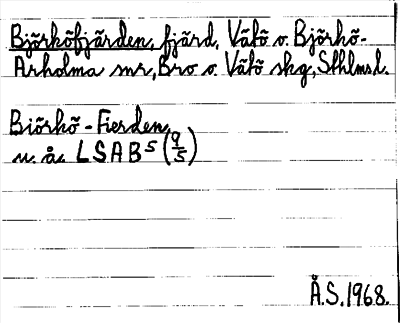 Björköfjärden, fjärd, Vätö o. Björkö-
Arholma snr, Bro o. Vätö skg, Sthlms l.
Biörkö-Fierden
u. å. LSA B⁵ (9/5)
Å.S. 1968.